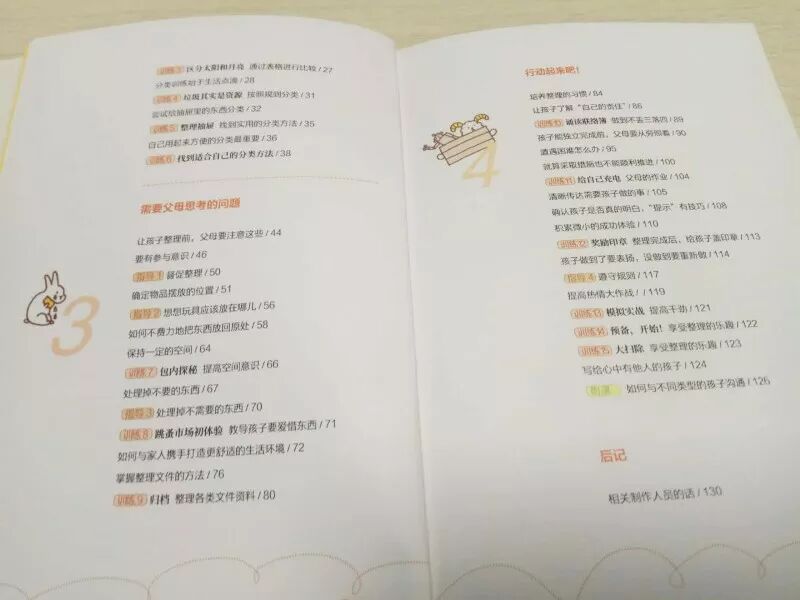 训练3 区分太阳和月亮 通过表格进行比较 / 27
分类训练始于生活点滴 / 28
训练4 垃圾其实是资源 按照规则分类 / 31
尝试给抽屉里的东西分类 / 32
训练5 整理抽屉 找到实用的分类方法 / 35
自己用起来方便的分类最重要 / 36
训练6 找到适合自己的分类方法 / 38
需要父母思考的问题
3
让孩子整理前，父母要注意这些 / 44
要有参与意识 / 46
指导1 督促整理 / 50
确定物品摆放的位置 / 51
指导2 想想玩具应该放在哪儿 / 56
如何不费力地把东西放回原处 / 58
保持一定的空间 / 64
训练7 包内探秘 提高空间意识 / 66
处理掉不要的东西 / 67
指导3 处理掉不需要的东西 / 70
训练8 跳蚤市场初体验 教导孩子要爱惜东西 / 71
如何与家人携手打造更舒适的生活环境 / 72
掌握整理文件的方法 / 76
训练9 归档 整理各类文件资料 / 80
行动起来吧！
4
培养整理的习惯 / 84
让孩子了解“自己的责任” / 86
训练10 诵读联络簿 做到不丢三落四 / 89
孩子能独立完成前，父母要从旁照看 / 90
遭遇困难怎么办 / 95
就算采取措施也不能顺利推进 / 100
训练11 给自己充电 父母的作业 / 104
清晰传达需要孩子做的事 / 105
确认孩子是否真的明白，“提示”有技巧 / 108
积累微小的成功体验 / 110
训练12 奖励印章 整理完成后，给孩子盖印章 / 113
孩子做到了要表扬，没做到要重新做 / 114
指导4 遵守规则 / 117
提高热情大作战！ / 119
训练13 模拟实战 提高干劲 / 121
训练14 预备，开始！ 享受整理的乐趣 / 122
训练15 大扫除 享受整理的乐趣 / 123
写给心中有他人的孩子 / 124
附录 如何与不同类型的孩子沟通 / 126
后记
相关制作人员的话 / 130